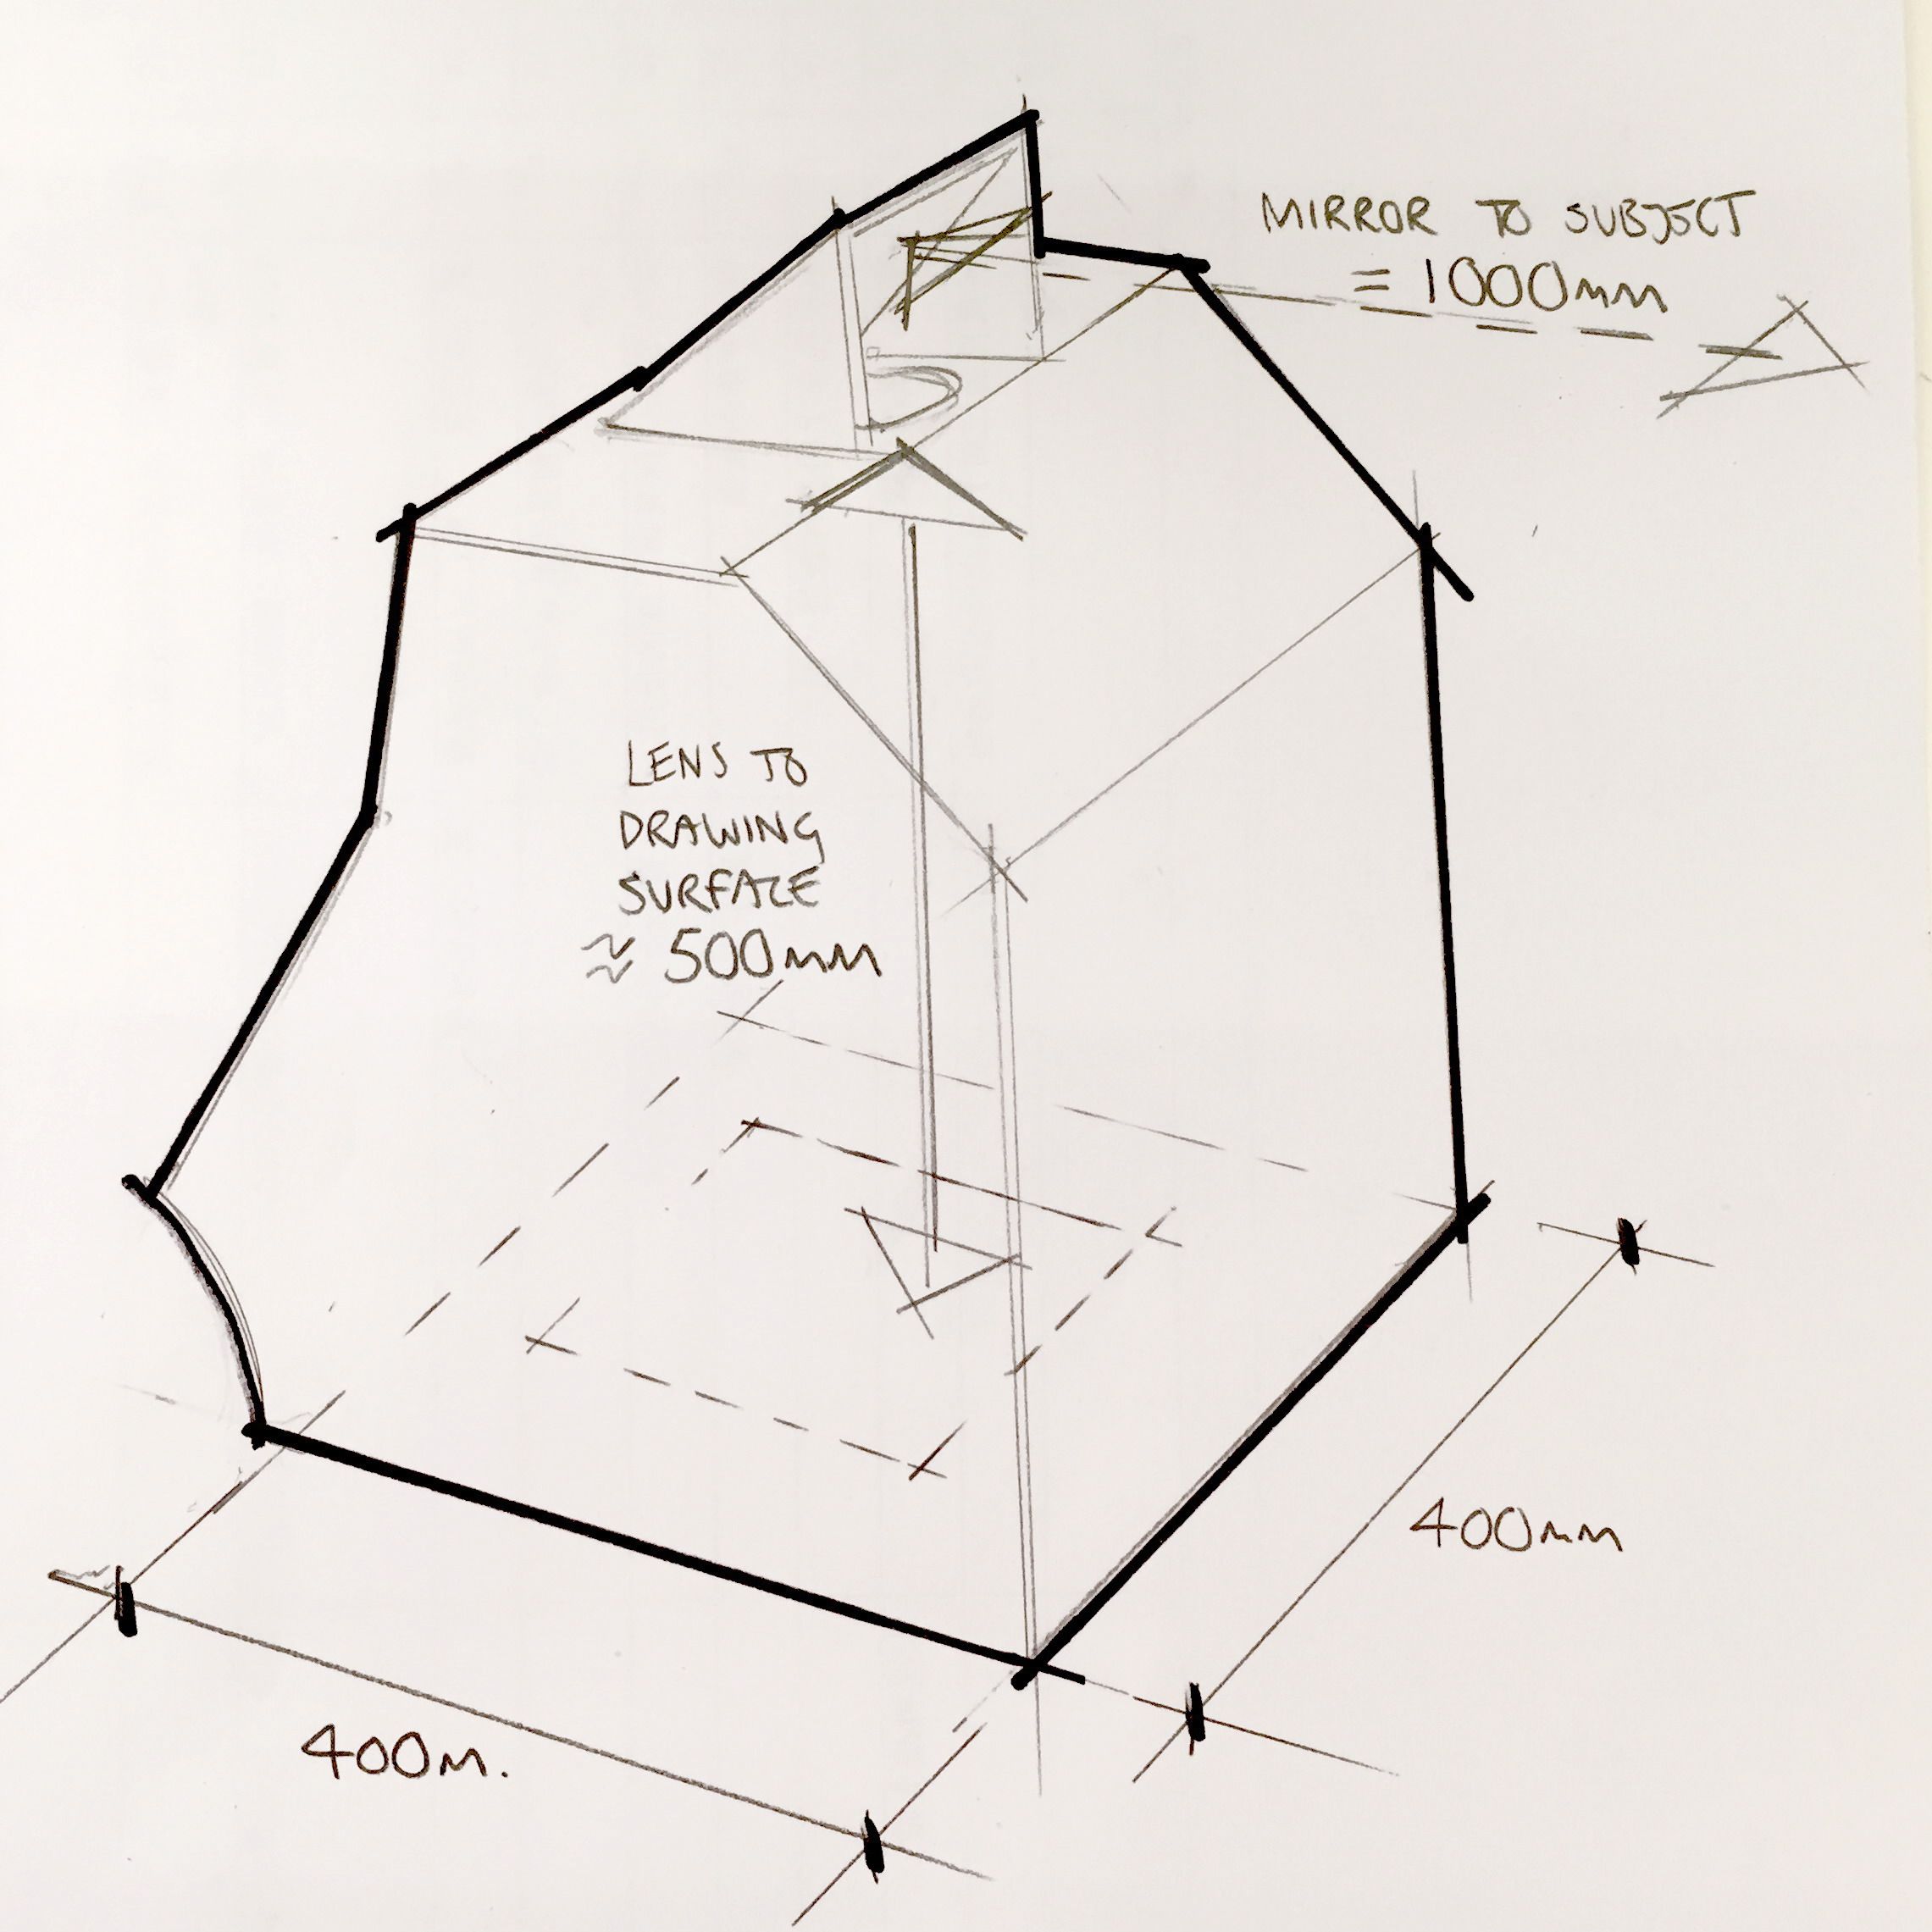 MIRROR TO SUBJECT
= 1000mm
LENS TO
DRAWING
SURFACE
≈ 500mm
400mm
400m.